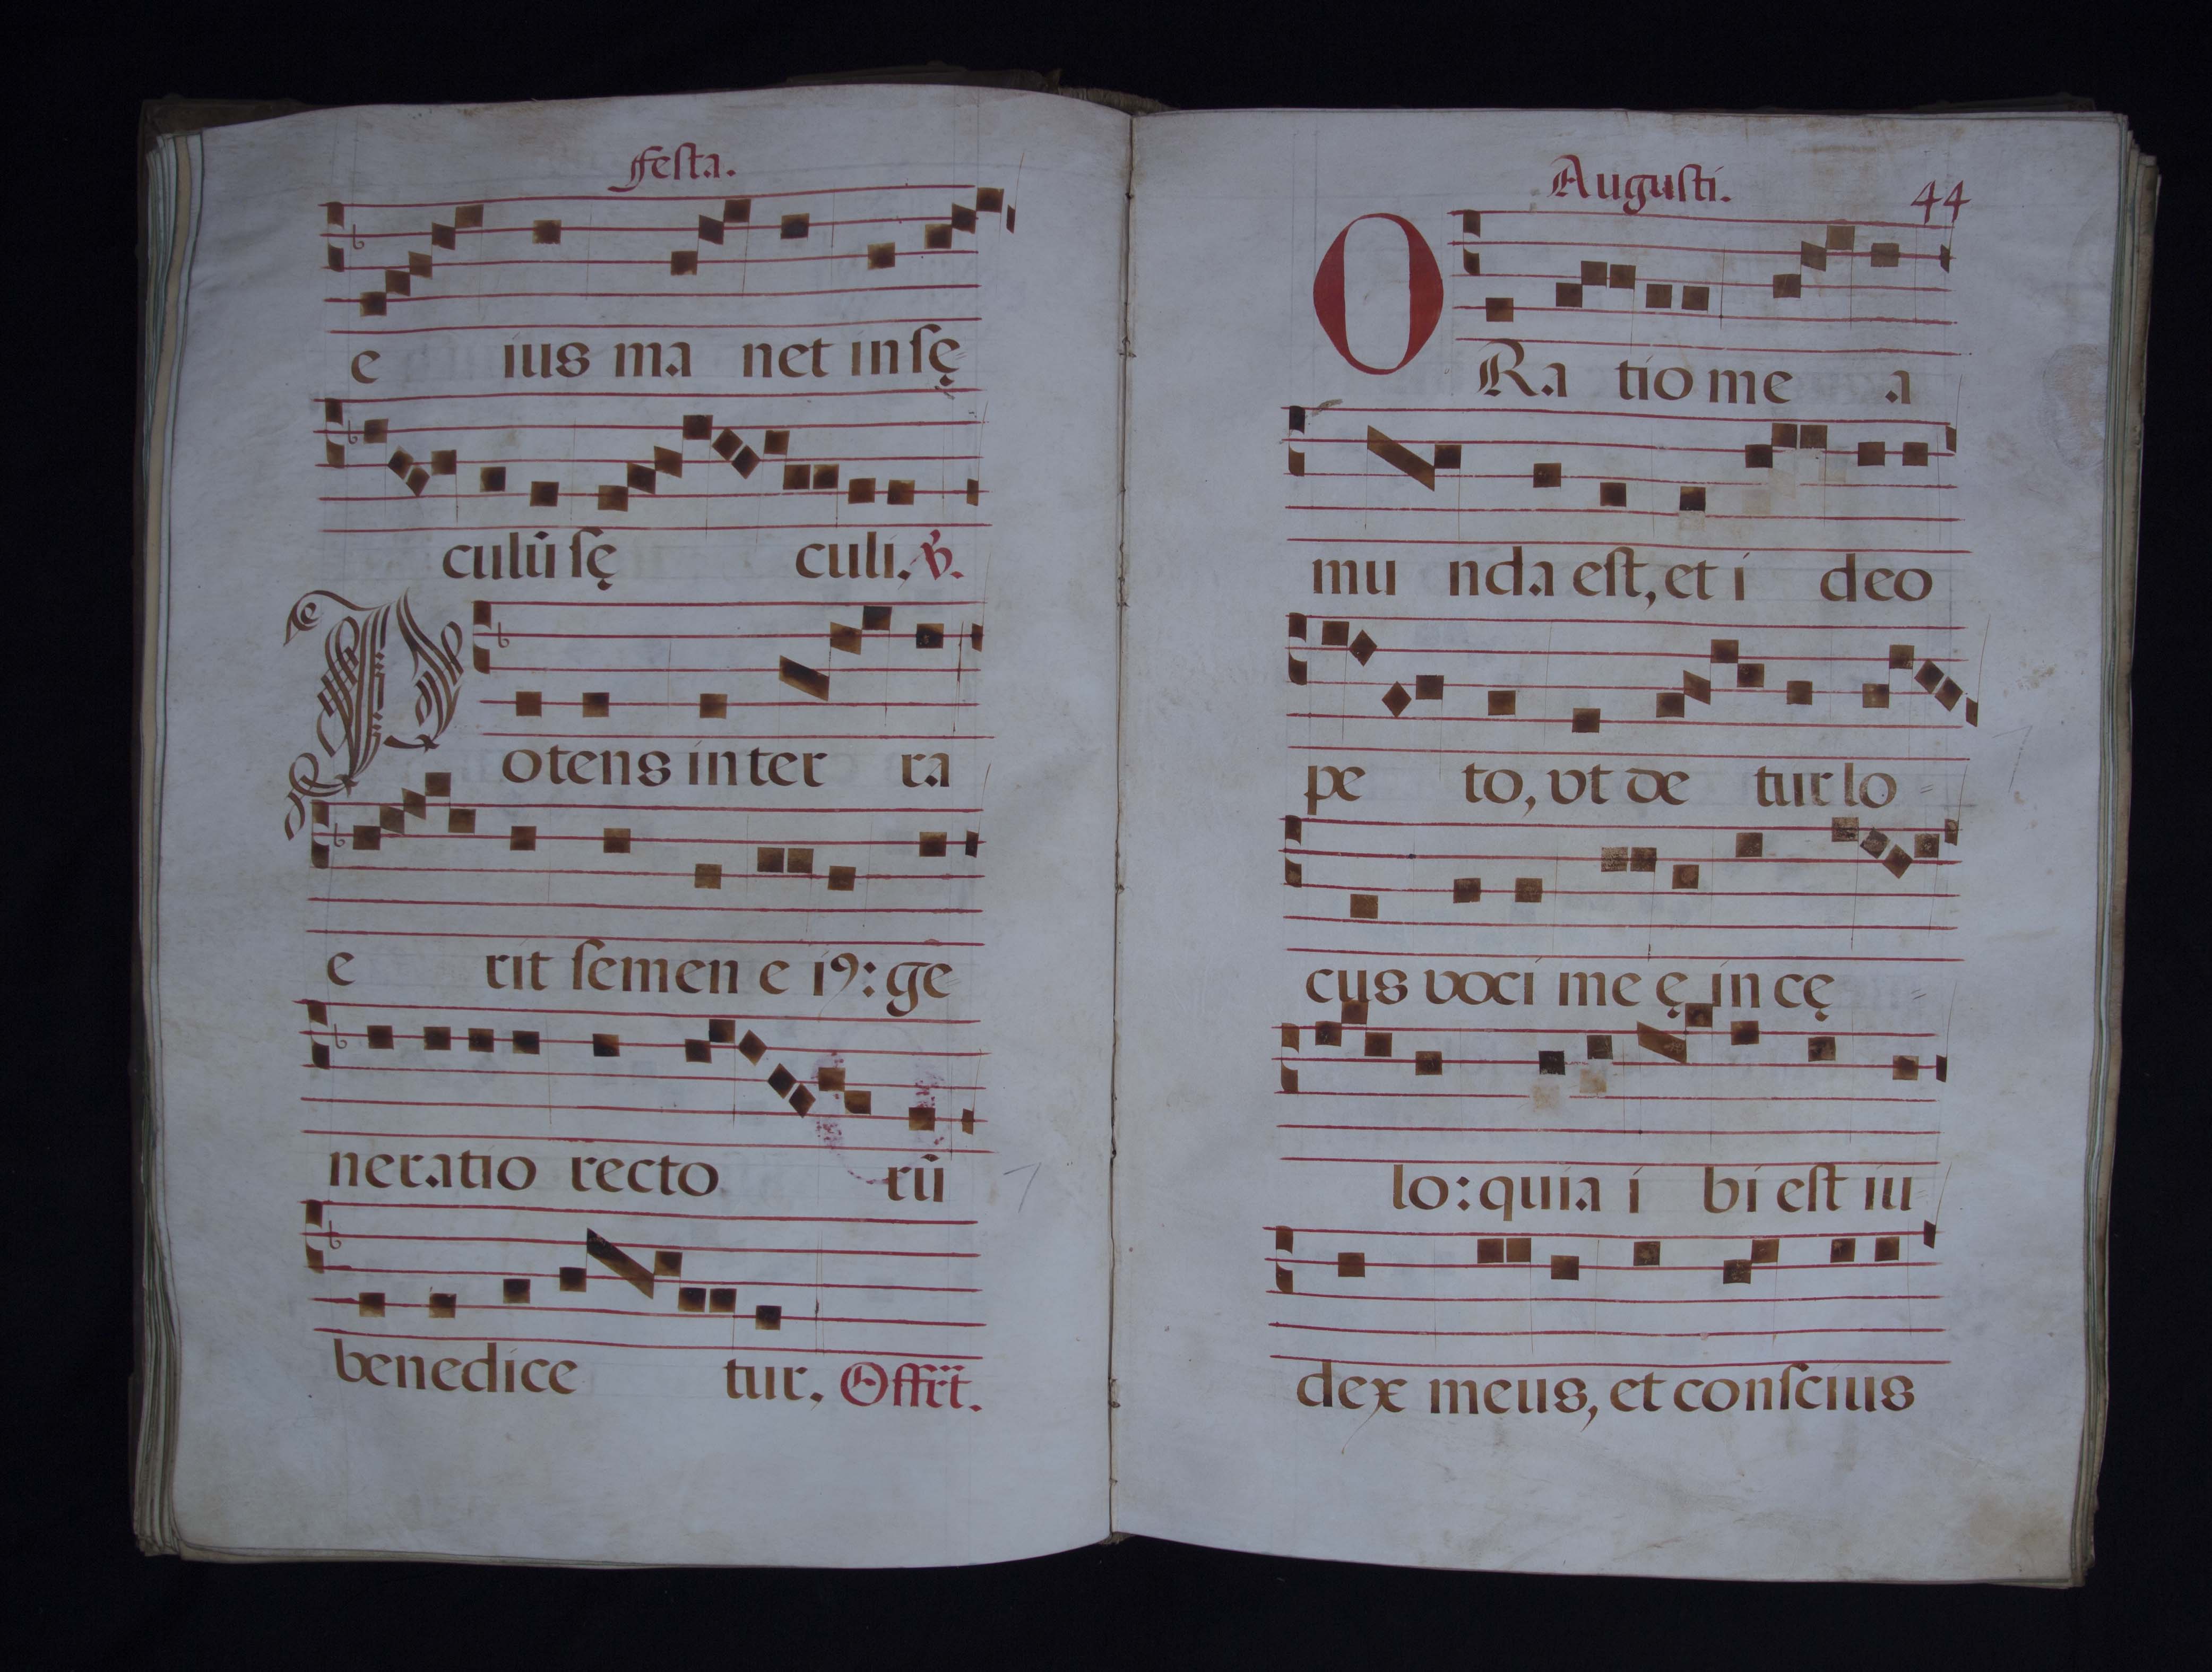 Festa.
e ius ma net in sę
culū sę culi. ℣.
Potens in ter ra
e rit semen e iꝰ: ge
neratio recto rū
benedice tur. Offrt.
Augusti. 44
ORa tio me a
mu nda est, et i deo
pe to, vt de tur lo
cus voci me ę in cę
lo: quia i bi est iu
dex meus, et conscius